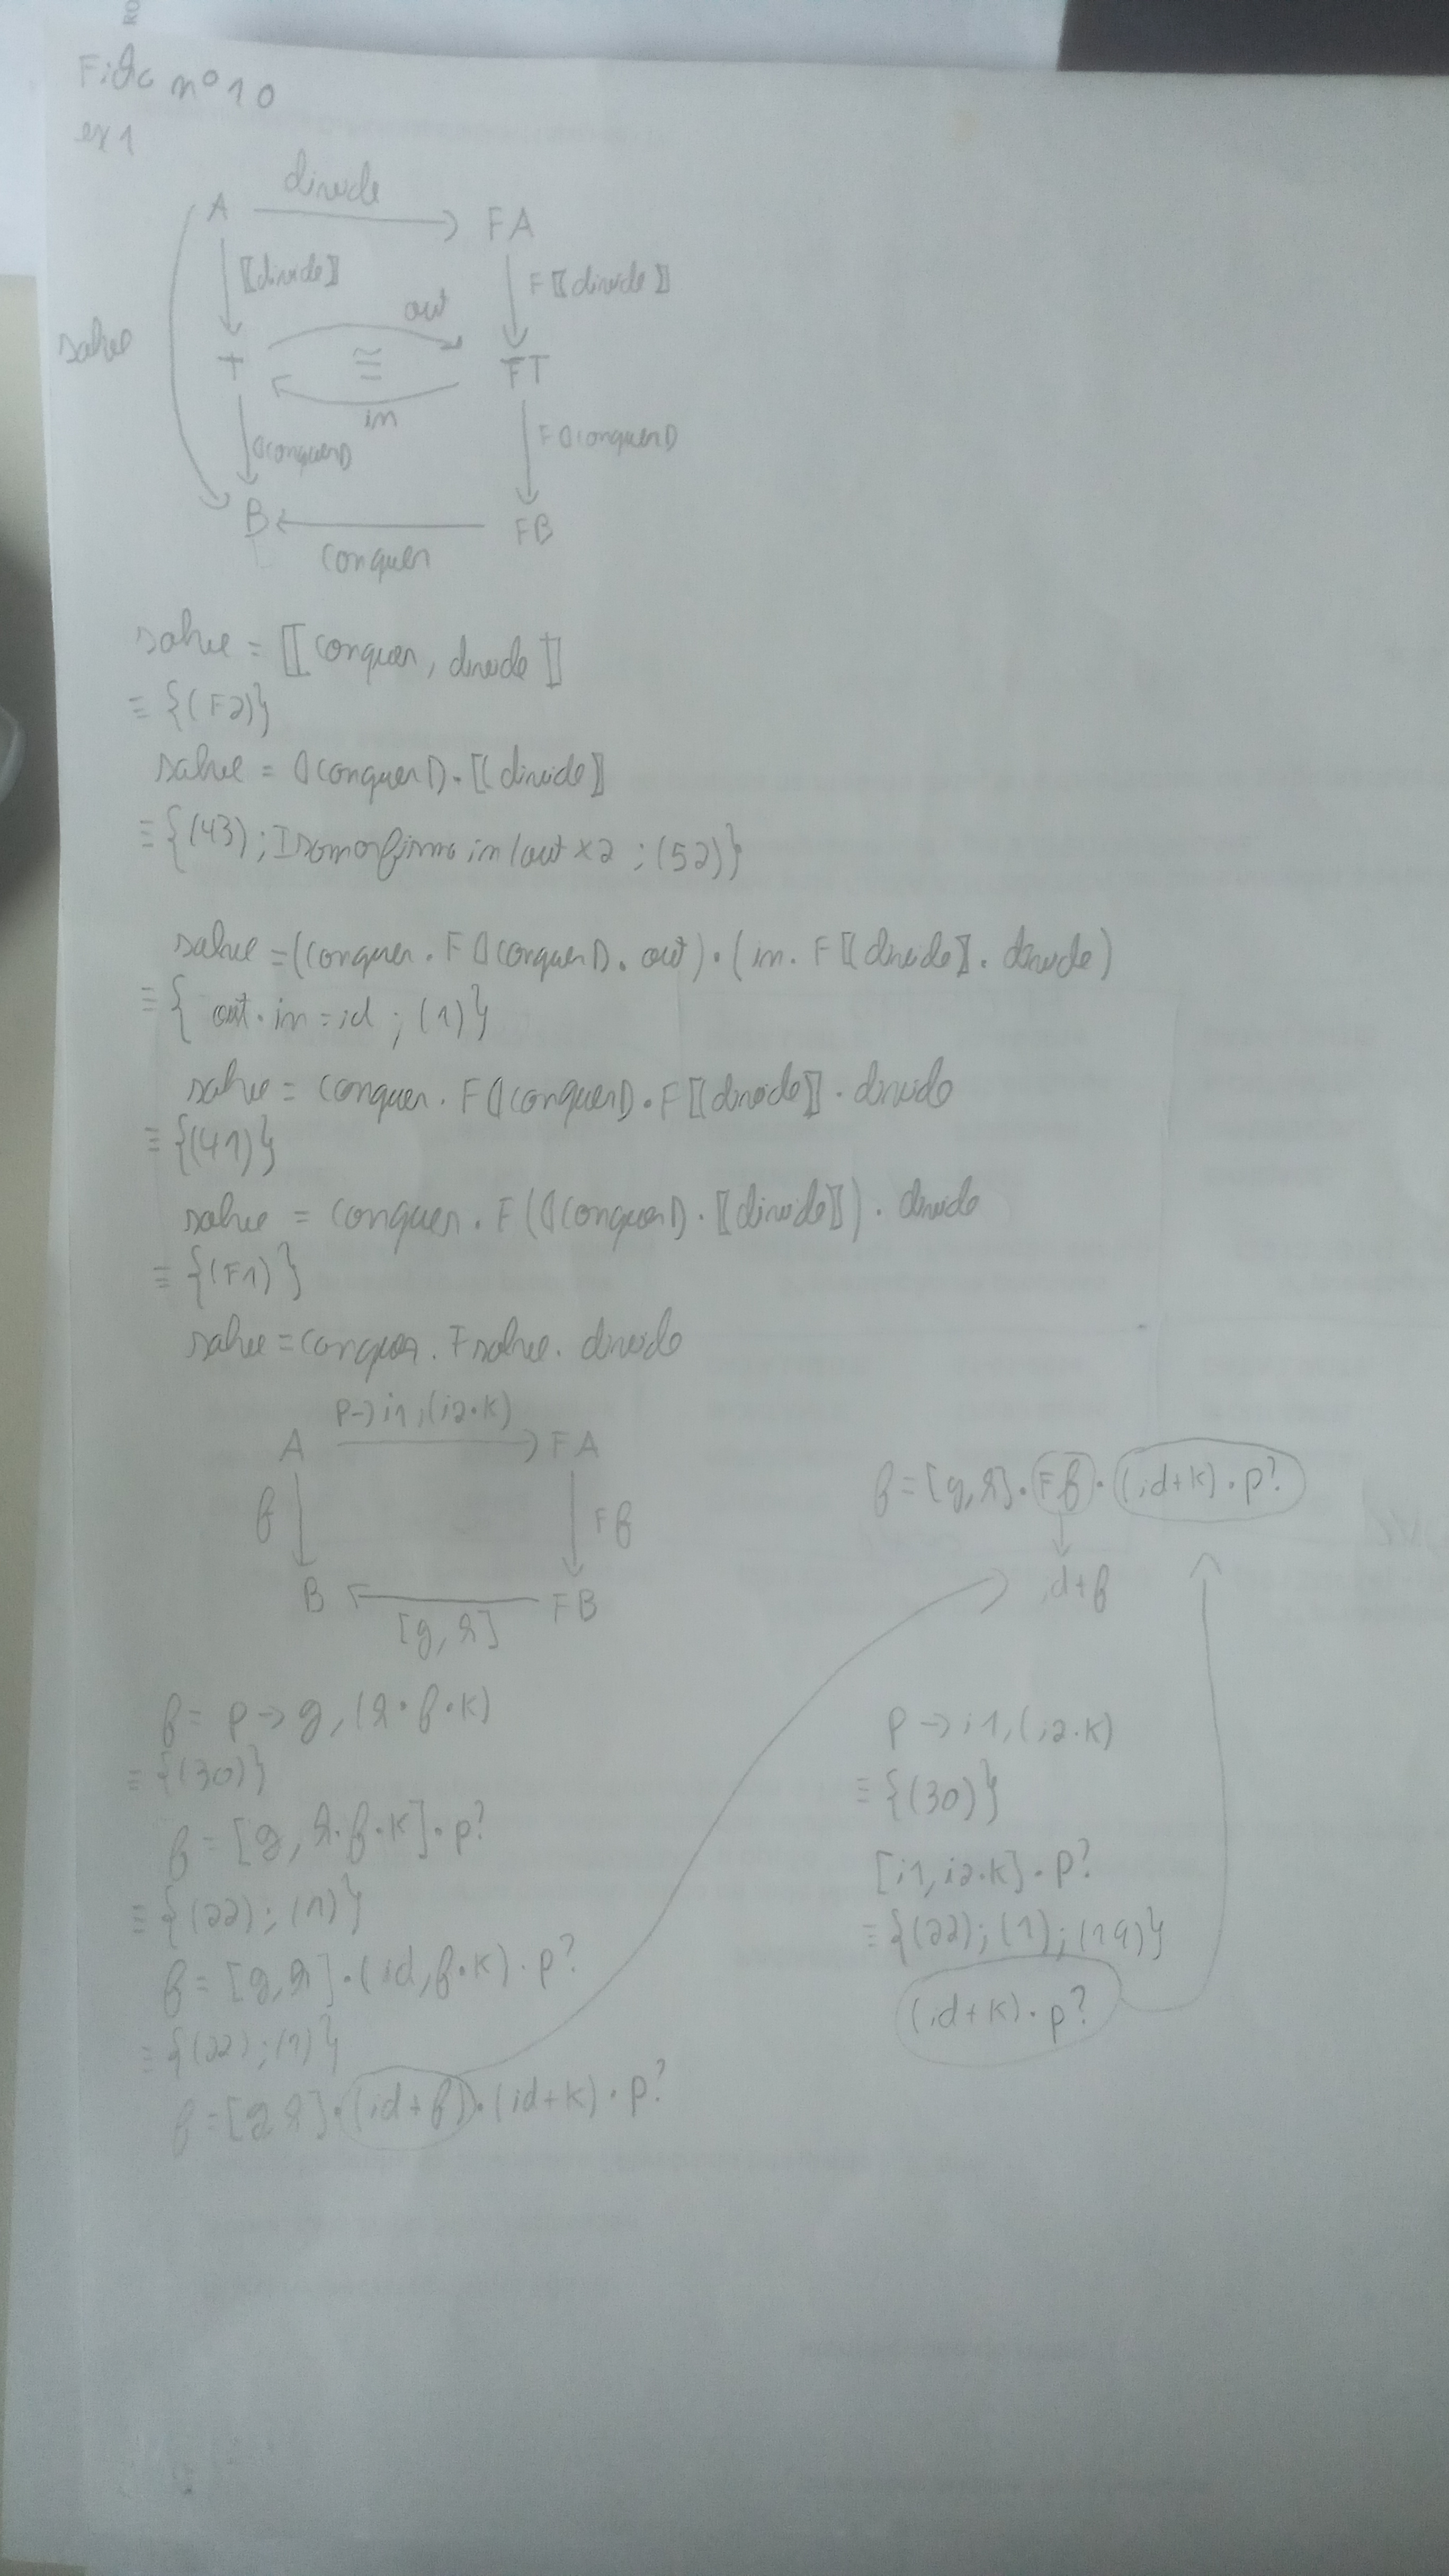 Ficha nº 10
ex 1
A divide FA
[(divide)] F[(divide)]
out
solve T ≅ FT
in
(|conquer|) F(|conquer|)
B FB
conquer
solve = [[conquer, divide]]
≡ {(F2)}
solve = (|conquer|) · [(divide)]
≡ {(43); Isomorfismo in/out x2 ; (52)}
solve = (conquer · F(|conquer|) · out) · (in · F[(divide)] · divide)
≡ { out · in = id ; (1)}
solve = conquer · F(|conquer|) · F[(divide)] · divide
≡ {(41)}
solve = conquer · F((|conquer|) · [(divide)]) · divide
≡ {(F1)}
solve = conquer · F solve · divide
p → i1, (i2·k)
A FA
f Ff
B FB
[g, h]
f = [g, h] · Ff · (id+k) · p?
id+f
f = p → g, (h·f·k)
≡ {(30)}
f = [g, h·f·k] · p?
≡ {(22); (1)}
f = [g, h] · (id, f·k) · p?
≡ {(22); (1)}
f = [g h] · (id+f) · (id+k) · p?
p → i1, (i2·k)
≡ {(30)}
[i1, i2·k] · p?
≡ {(22); (1); (19)}
(id+k) · p?